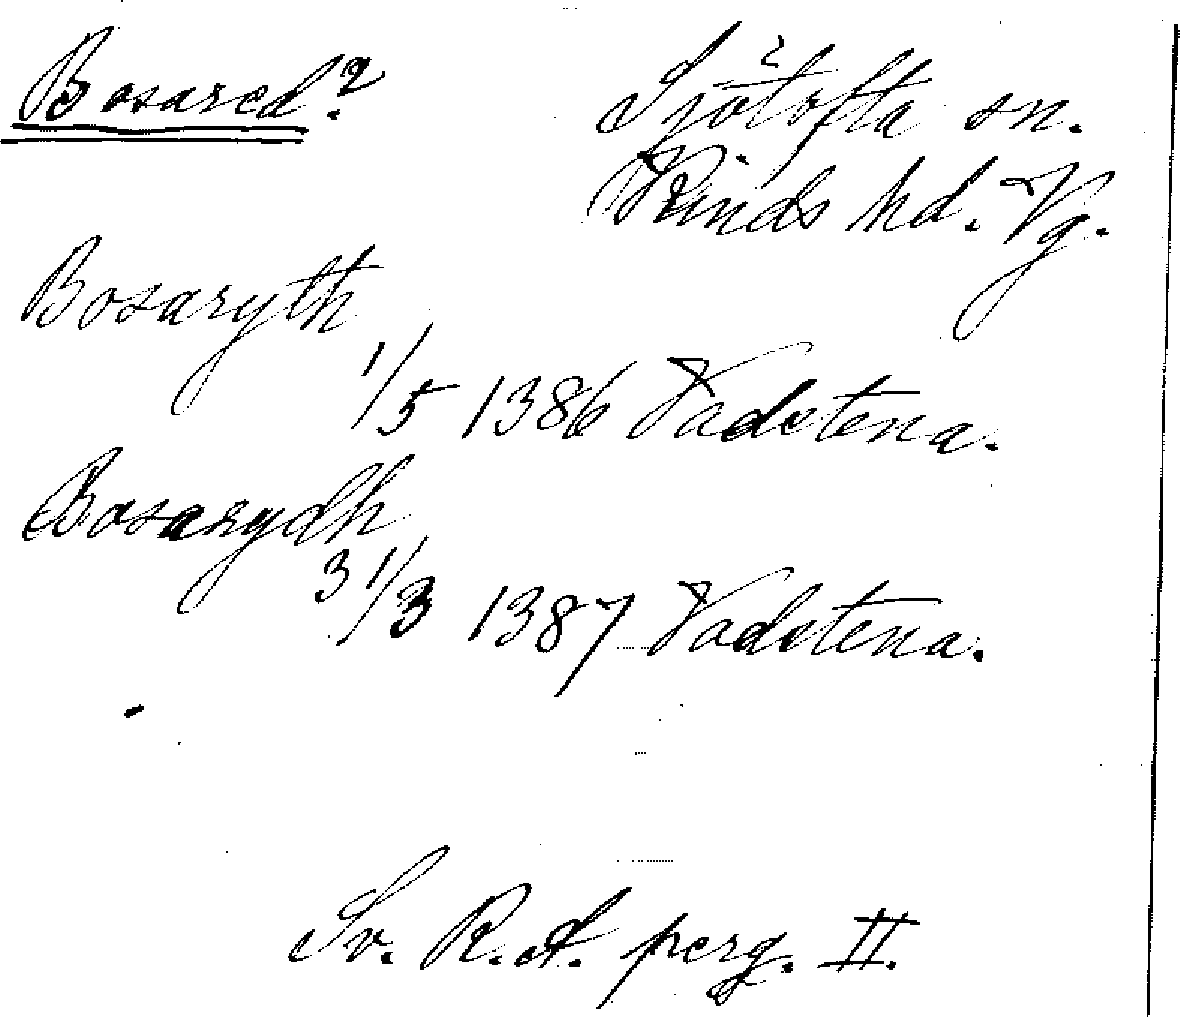 Bosared? Sjötofta sn.
Kinds hd. Vg.
Bosaryth
1/5 1386 Vadstena.
Bosarydh
31/3 1387 Vadstena.
Sv. R. A. perg. II.